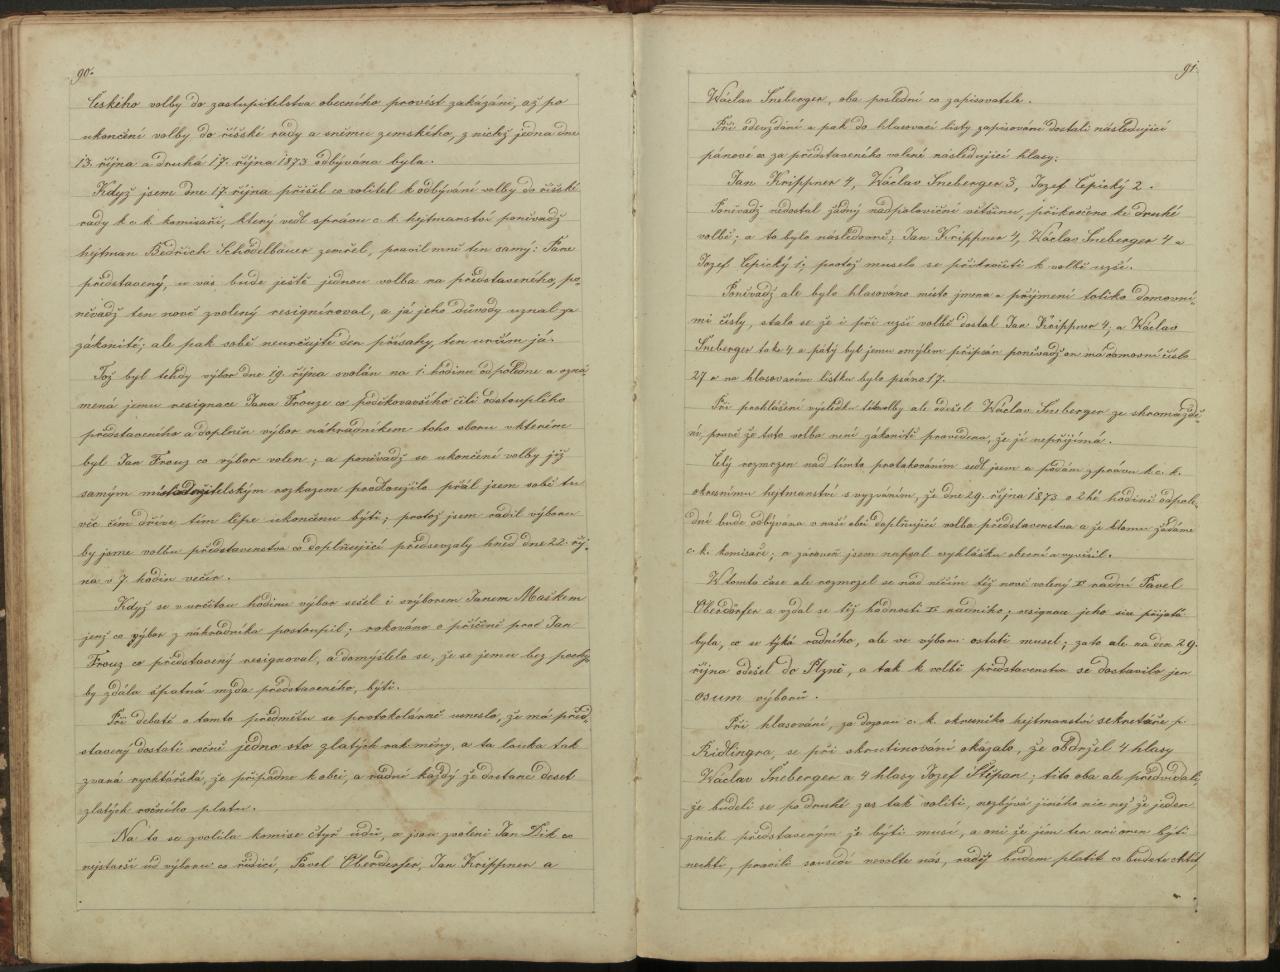 90.
českého volby do zastupitelstva obecního provést zakázáni, až po
ukončení volby do říšské rady a sněmu zemského, z nichž jedna dne
13. října a druhá 17. října 1873 odbývána byla.
Když jsem dne 17. října přišel co volitel k odbývání volby do říšské
rady k c. k. komisaři, který vedl správu c. k. hejtmanství poněvadž
hejtman Bedřich Schödelbauer zemřel, pravil mně ten samý: Pane
představený, u vás bude ještě jednou volba na představeného, po-
něvadž ten nově zvolený resigníroval, a já jeho důvody uznal za
zákonité; ale pak sobě neurčujte den přísahy, ten určím já.
Tož byl tehdy výbor dne 19. října svolán na 1. hodinu odpoledne a ozná-
mená jemu resignace Jana Frouze co poděkovavšího čili odstouplého
představeného a doplněn výbor náhradníkem toho sboru v kterém
byl Jan Frouz co výbor volen; a poněvadž se ukončení volby již
samým místodržitelským rozkazem prodloužilo přál jsem sobě tu
věc čím dříve tím lépe ukončenu býti; protož jsem radil výboru
by jsme volbu představenstva co doplňující předsevzaly hned dne 22. říj-
na v 7 hodin večer.
Když se v určitou hodinu výbor sešel i s výborem Janem Maškem
jenž co výbor z náhradníka postoupil; rokováno o příčině proč Jan
Frouz co představený resignoval, a domýšlelo se, že se jemu bez pochy-
by zdála špatná mzda představeného, býti.
Při debatě o tomto předmětu se protokolárně usneslo, že má před-
stavený dostati ročně jedno sto zlatých rak. měny, a ta louka tak
zvaná rychtářská, že připadne k obci, a radní každý že dostane deset
zlatých ročního platu.
Na to se zvolila komise čtyř údů, a jsou zvoleni Jan Dik co
nejstarší úd výboru co řídící, Pavel Oberdorfer, Jan Krippner a
91.
Wáclav Šneberger, oba poslední co zapisovatele.
Při odevzdání a pak do hlasovací listy zapisování dostali následující
pánové co za představeného volené následující hlasy:
Jan Krippner 4, Wáclav Šneberger 3, Jozef Cepický 2.
Poněvadž nedostal žádný nadpoloviční většinu, přikročeno ke druhé
volbě; a to bylo následovně; Jan Krippner 4, Wáclav Šneberger 4 a
Jozef Cepický 1; protož muselo se přikročiti k volbě užší.
Poněvadž ale bylo hlasováno místo jmena a příjmení toliko domovní-
mi čísly, stalo se že i při užší volbě dostal Jan Krippner 4, a Wáclav
Šneberger také 4 a pátý byl jemu omylem připsán poněvadž on má domovní číslo
27 a na hlasovacím lístku bylo psáno 17.
Při prohlášení výsledku této volby ale odešel Wáclav Šneberger ze shromáždě-
ní, pravě že tato volba není zákonitě provedena, že jí nepřijímá.
Celý rozmrzen nad tímto protahováním sedl jsem a podám zprávu k c. k.
okresnímu hejtmanství s vyzváním, že dne 29. října 1873 o 2hé hodině odpole-
dní bude odbývána v naší obci doplňující volba představenstva a že k tomu žádáme
c. k. komisaře; a zároveň jsem napsal vyhlášku obecní a vyvěsil.
W tomto čase ale rozmrzel se nad něčím též nově volený I. radní Pavel
Oberdörfer a vzdal se též hodnosti I. radního; resignace jeho sice přijatá
byla, co se týká radního, ale ve výboru ostati musel; za to ale na den 29.
října odešel do Plzně, a tak k volbě představenstva se dostavilo jen
osum výborů.
Při hlasování, za dozoru c. k. okresního hejtmanství sekretáře p.
Ridlingra, se při skrutinování okázalo, že obdržel 4 hlasy
Wáclav Šneberger a 4 hlasy Jozef Štípan; tito oba ale předvidali,
že budeli se po druhé zas tak voliti, nezbývá jiného nic než že jeden
z nich představeným že býti musí, a oni že jím ten ani onen býti
nechtí, pravili sousedi nevolte nás, raděj budem platit co budete chtít,